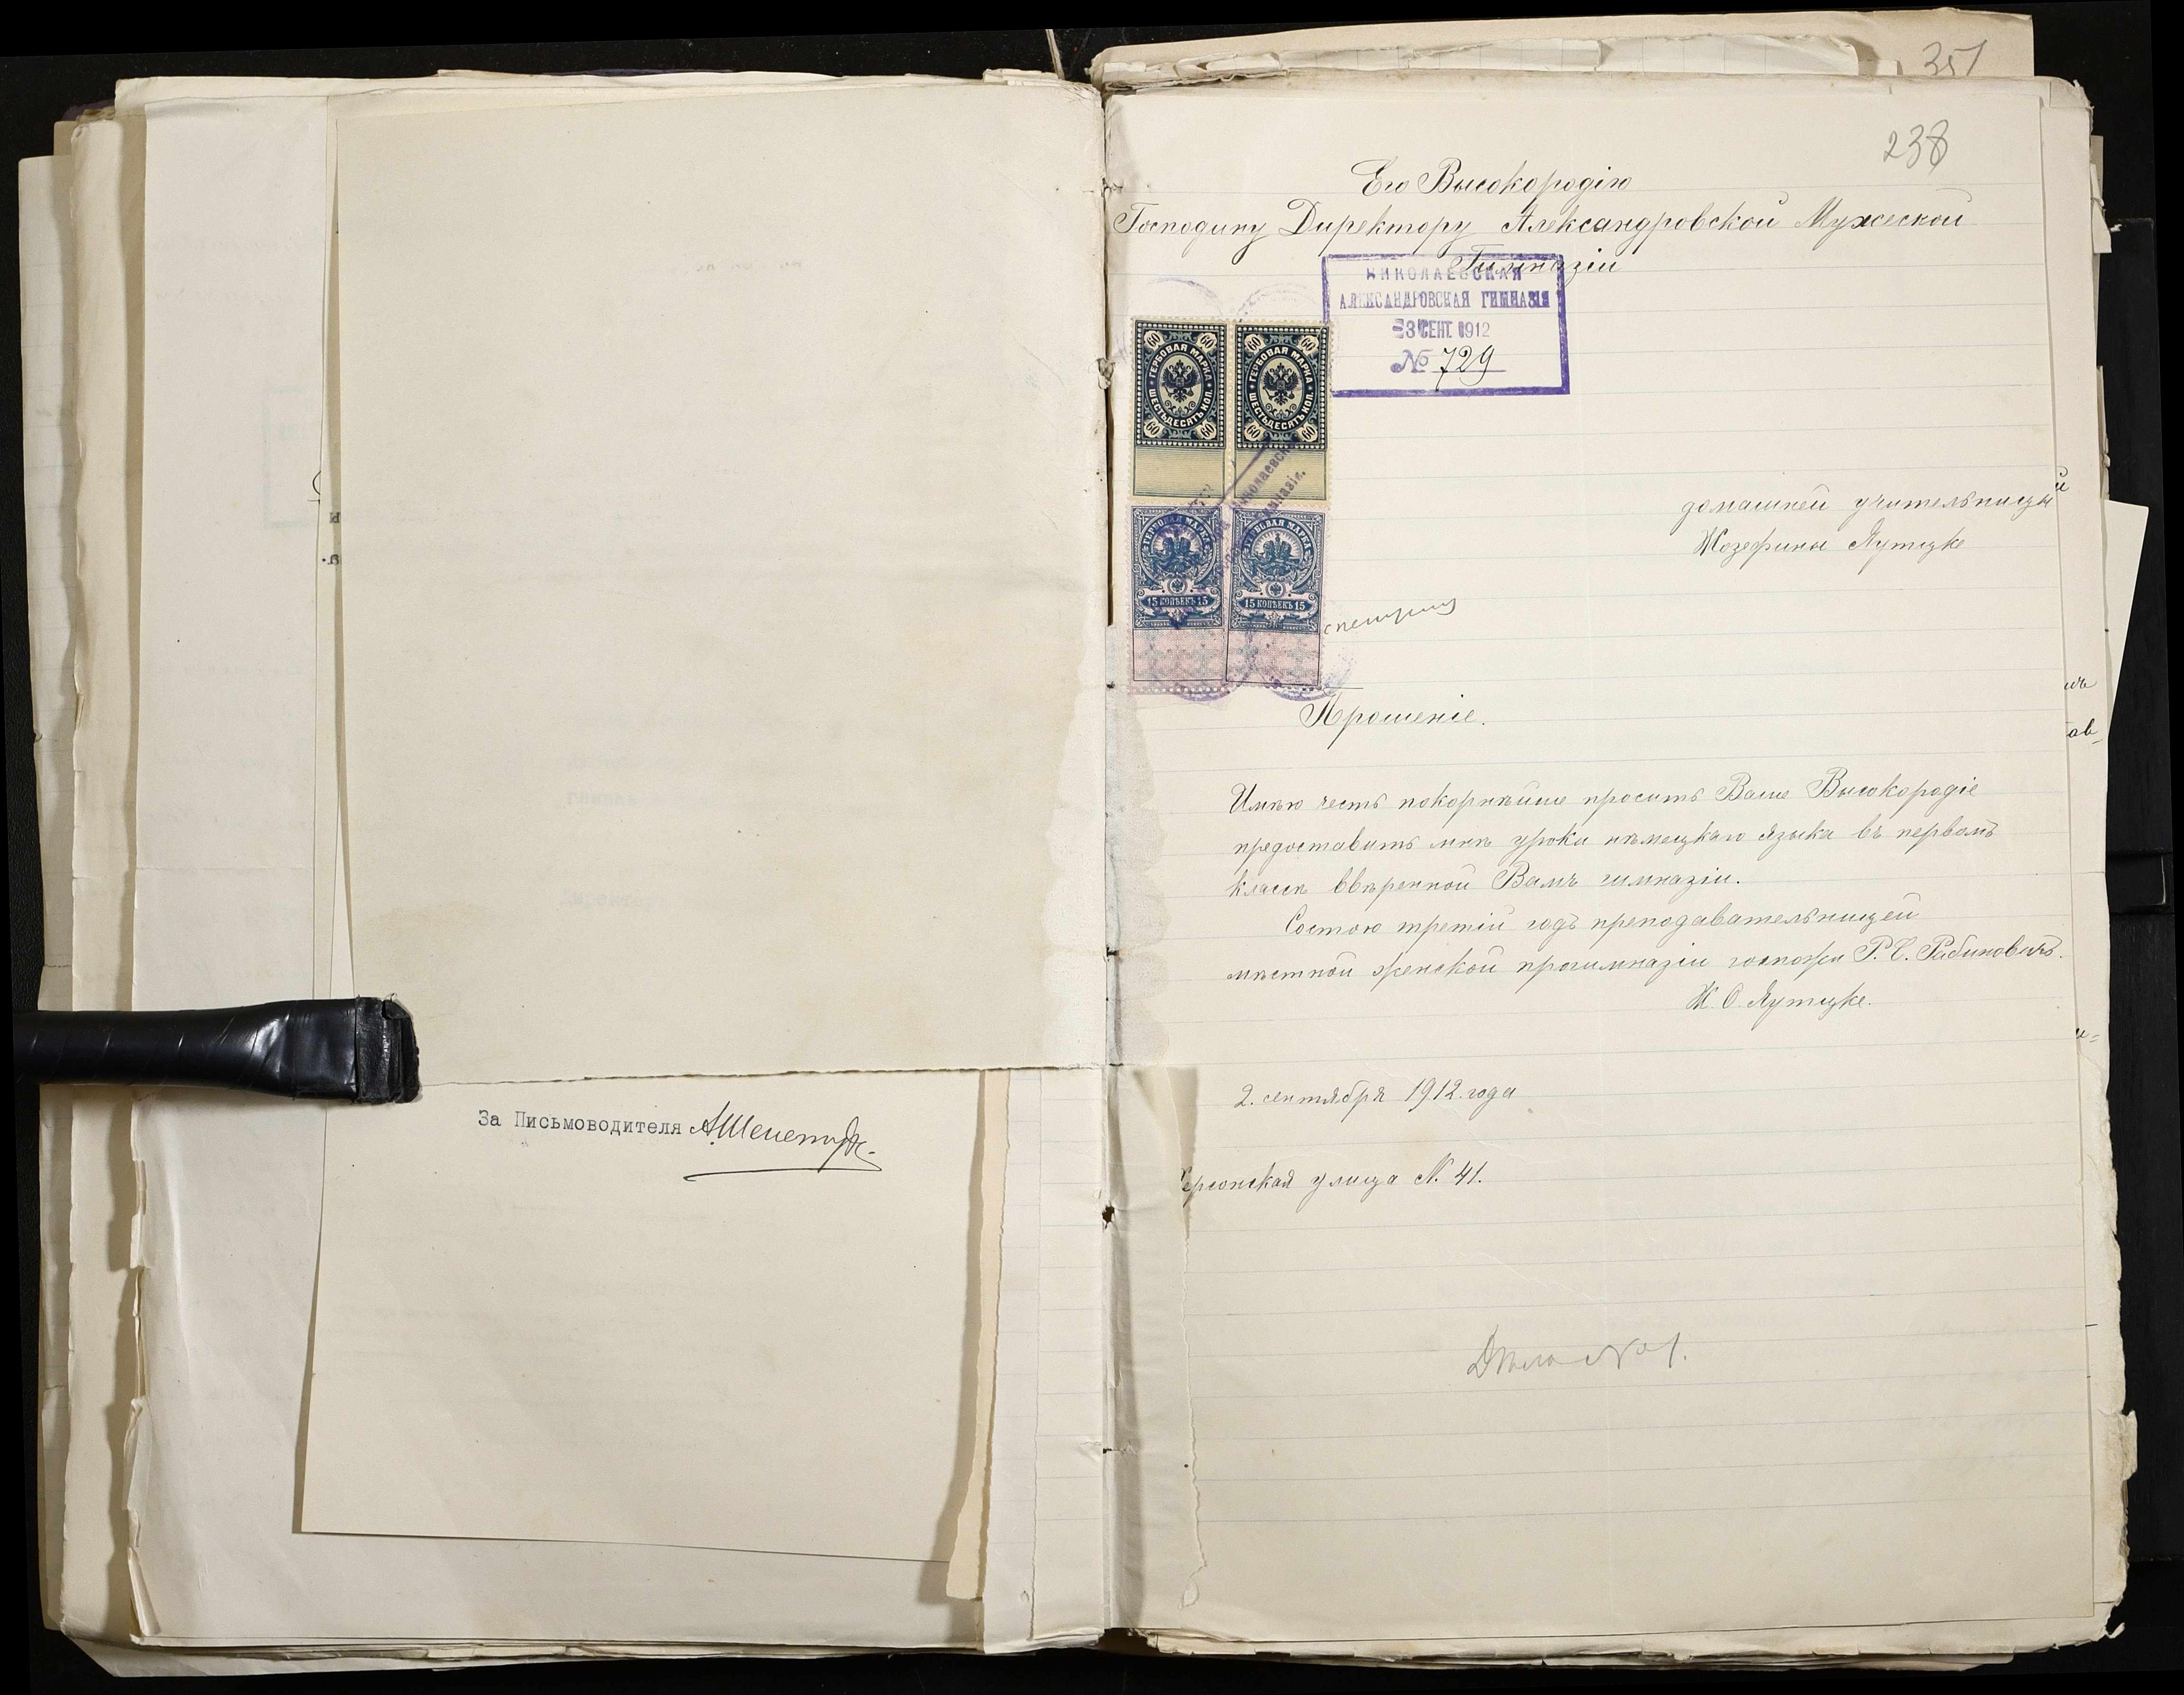 За Письмоводителя
351
238
Его Высокородію
Господину Директору Александровской Мужеской
Гимназіи
НИКОЛАЕВСКАЯ
АЛЕКСАНДРОВСКАЯ ГИМНАЗІЯ
3 СЕНТ. 1912
№ 729
60 60 60 60
ГЕРБОВАЯ МАРКА ГЕРБОВАЯ МАРКА
ШЕСТЬДЕСЯТЪ КОП. ШЕСТЬДЕСЯТЪ КОП.
60 60 60 60
ГЕРБОВАЯ МАРКА ГЕРБОВАЯ МАРКА
15 КОПѢЕКЪ 15 15 КОПѢЕКЪ 15
домашней учительницы
Жозефины Яутцке
Прошеніе.
Имѣю честь покорнѣйше просить Ваше Высокородіе
предоставить мнѣ уроки нѣмецкаго языка въ первомъ
классѣ ввѣренной Вамъ гимназіи.
Состою третій годъ преподавательницей
мѣстной женской прогимназіи госпожи Р. С. Рабиновичъ.
Ж. О. Яутцке.
2. сентября 1912. года
Херсонская улица N. 41.
Дѣло № 1.